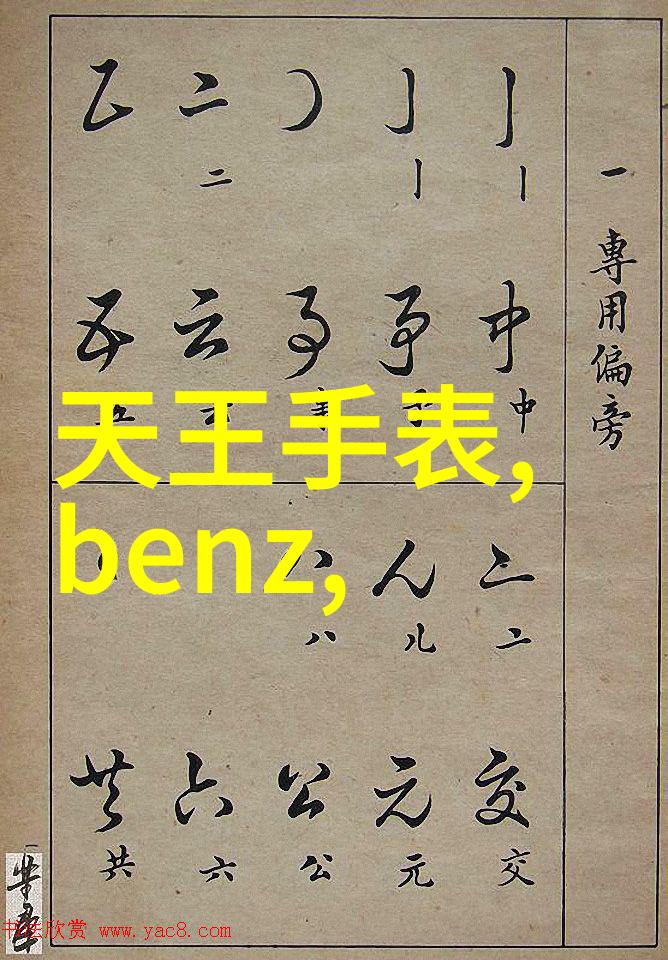 一 專用偏旁
丨
中
中
丨
争
事
二
二
云
五
二
交
交
儿
元
元
八
八
公
公
六
六
共
共
天王手表,
benz,
书法欣赏 www.yac8.com